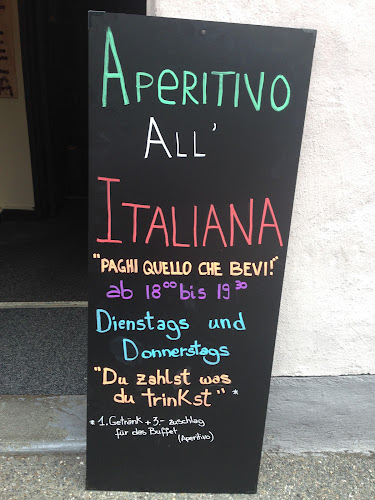 APERITIVO
ALL'
ITALIANA
"PAGHI QUELLO CHE BEVI!"
ab 18⁰⁰ bis 19³⁰
Dienstags und
Donnerstags
"Du zahlst was
du trinkst" *
* 1. Getränk + 3.- zuschlag
für das Buffet
(Aperitivo)